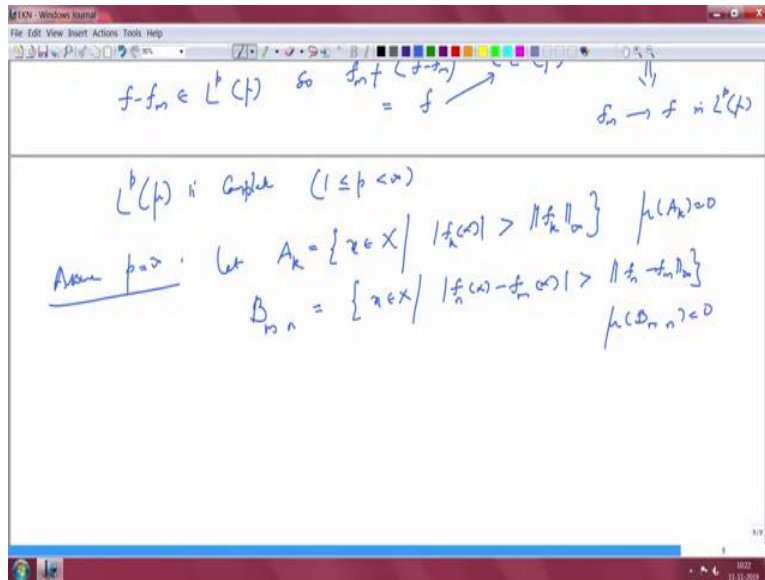 LKN - Windows Journal
File Edit View Insert Actions Tools Help
f-fₘ ∈ Lᵖ(μ) so fₘ + (f-fₘ)
= f
⇓
fₘ → f in Lᵖ(μ)
Lᵖ(μ) is Complete (1 ≤ p < ∞)
Assume p=∞. Let Aₖ = {x ∈ X | |fₖ(x)| > ||fₖ||∞} μ(Aₖ)=0
Bₘₙ = {x ∈ X | |fₙ(x) - fₘ(x)| > ||fₙ - fₘ||∞}
μ(Bₘₙ)=0
9/9
9
10:22
11-11-2019